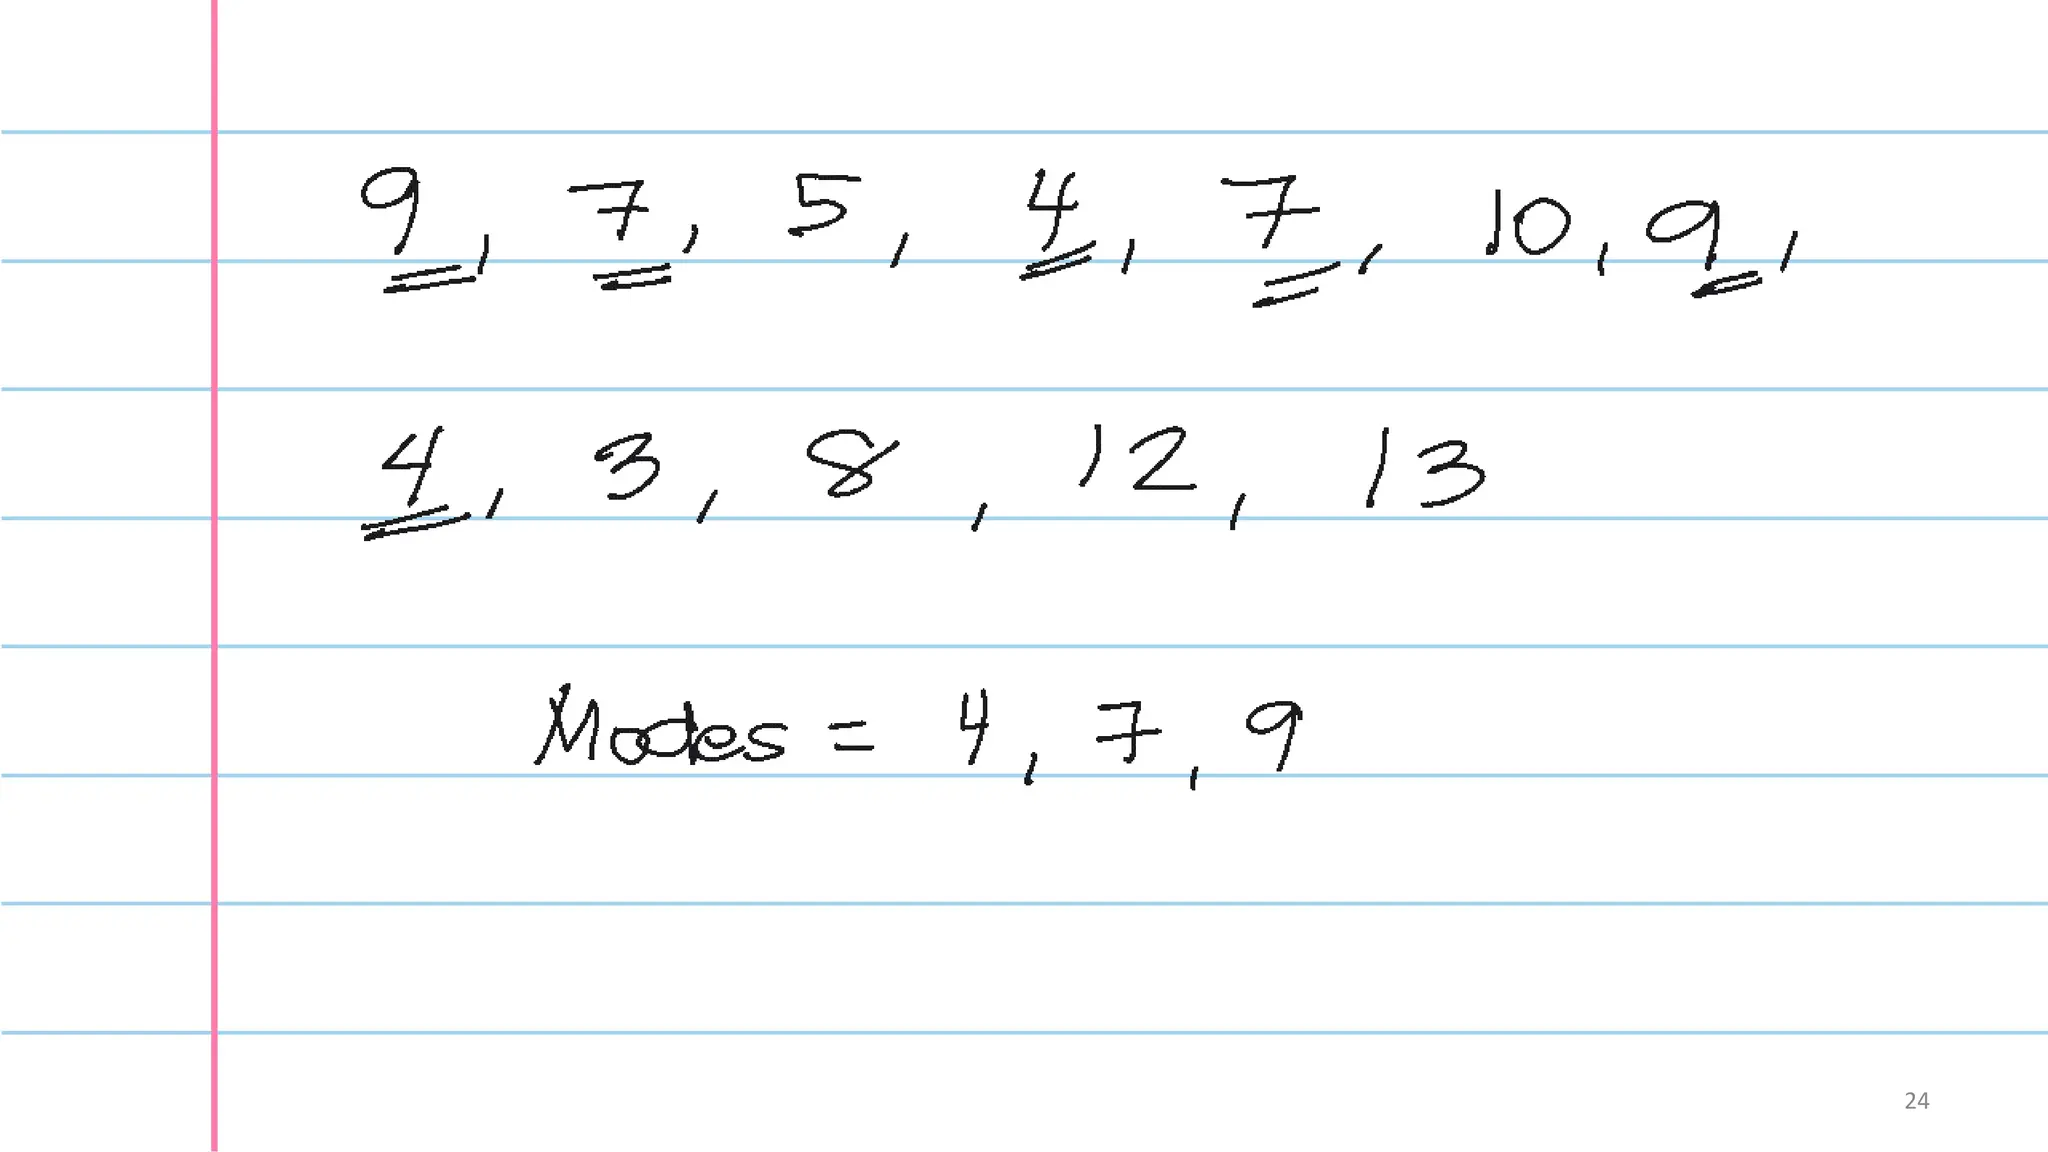 9, 7, 5, 4, 7, 10, 9,
4, 3, 8, 12, 13
Modes = 4, 7, 9
24